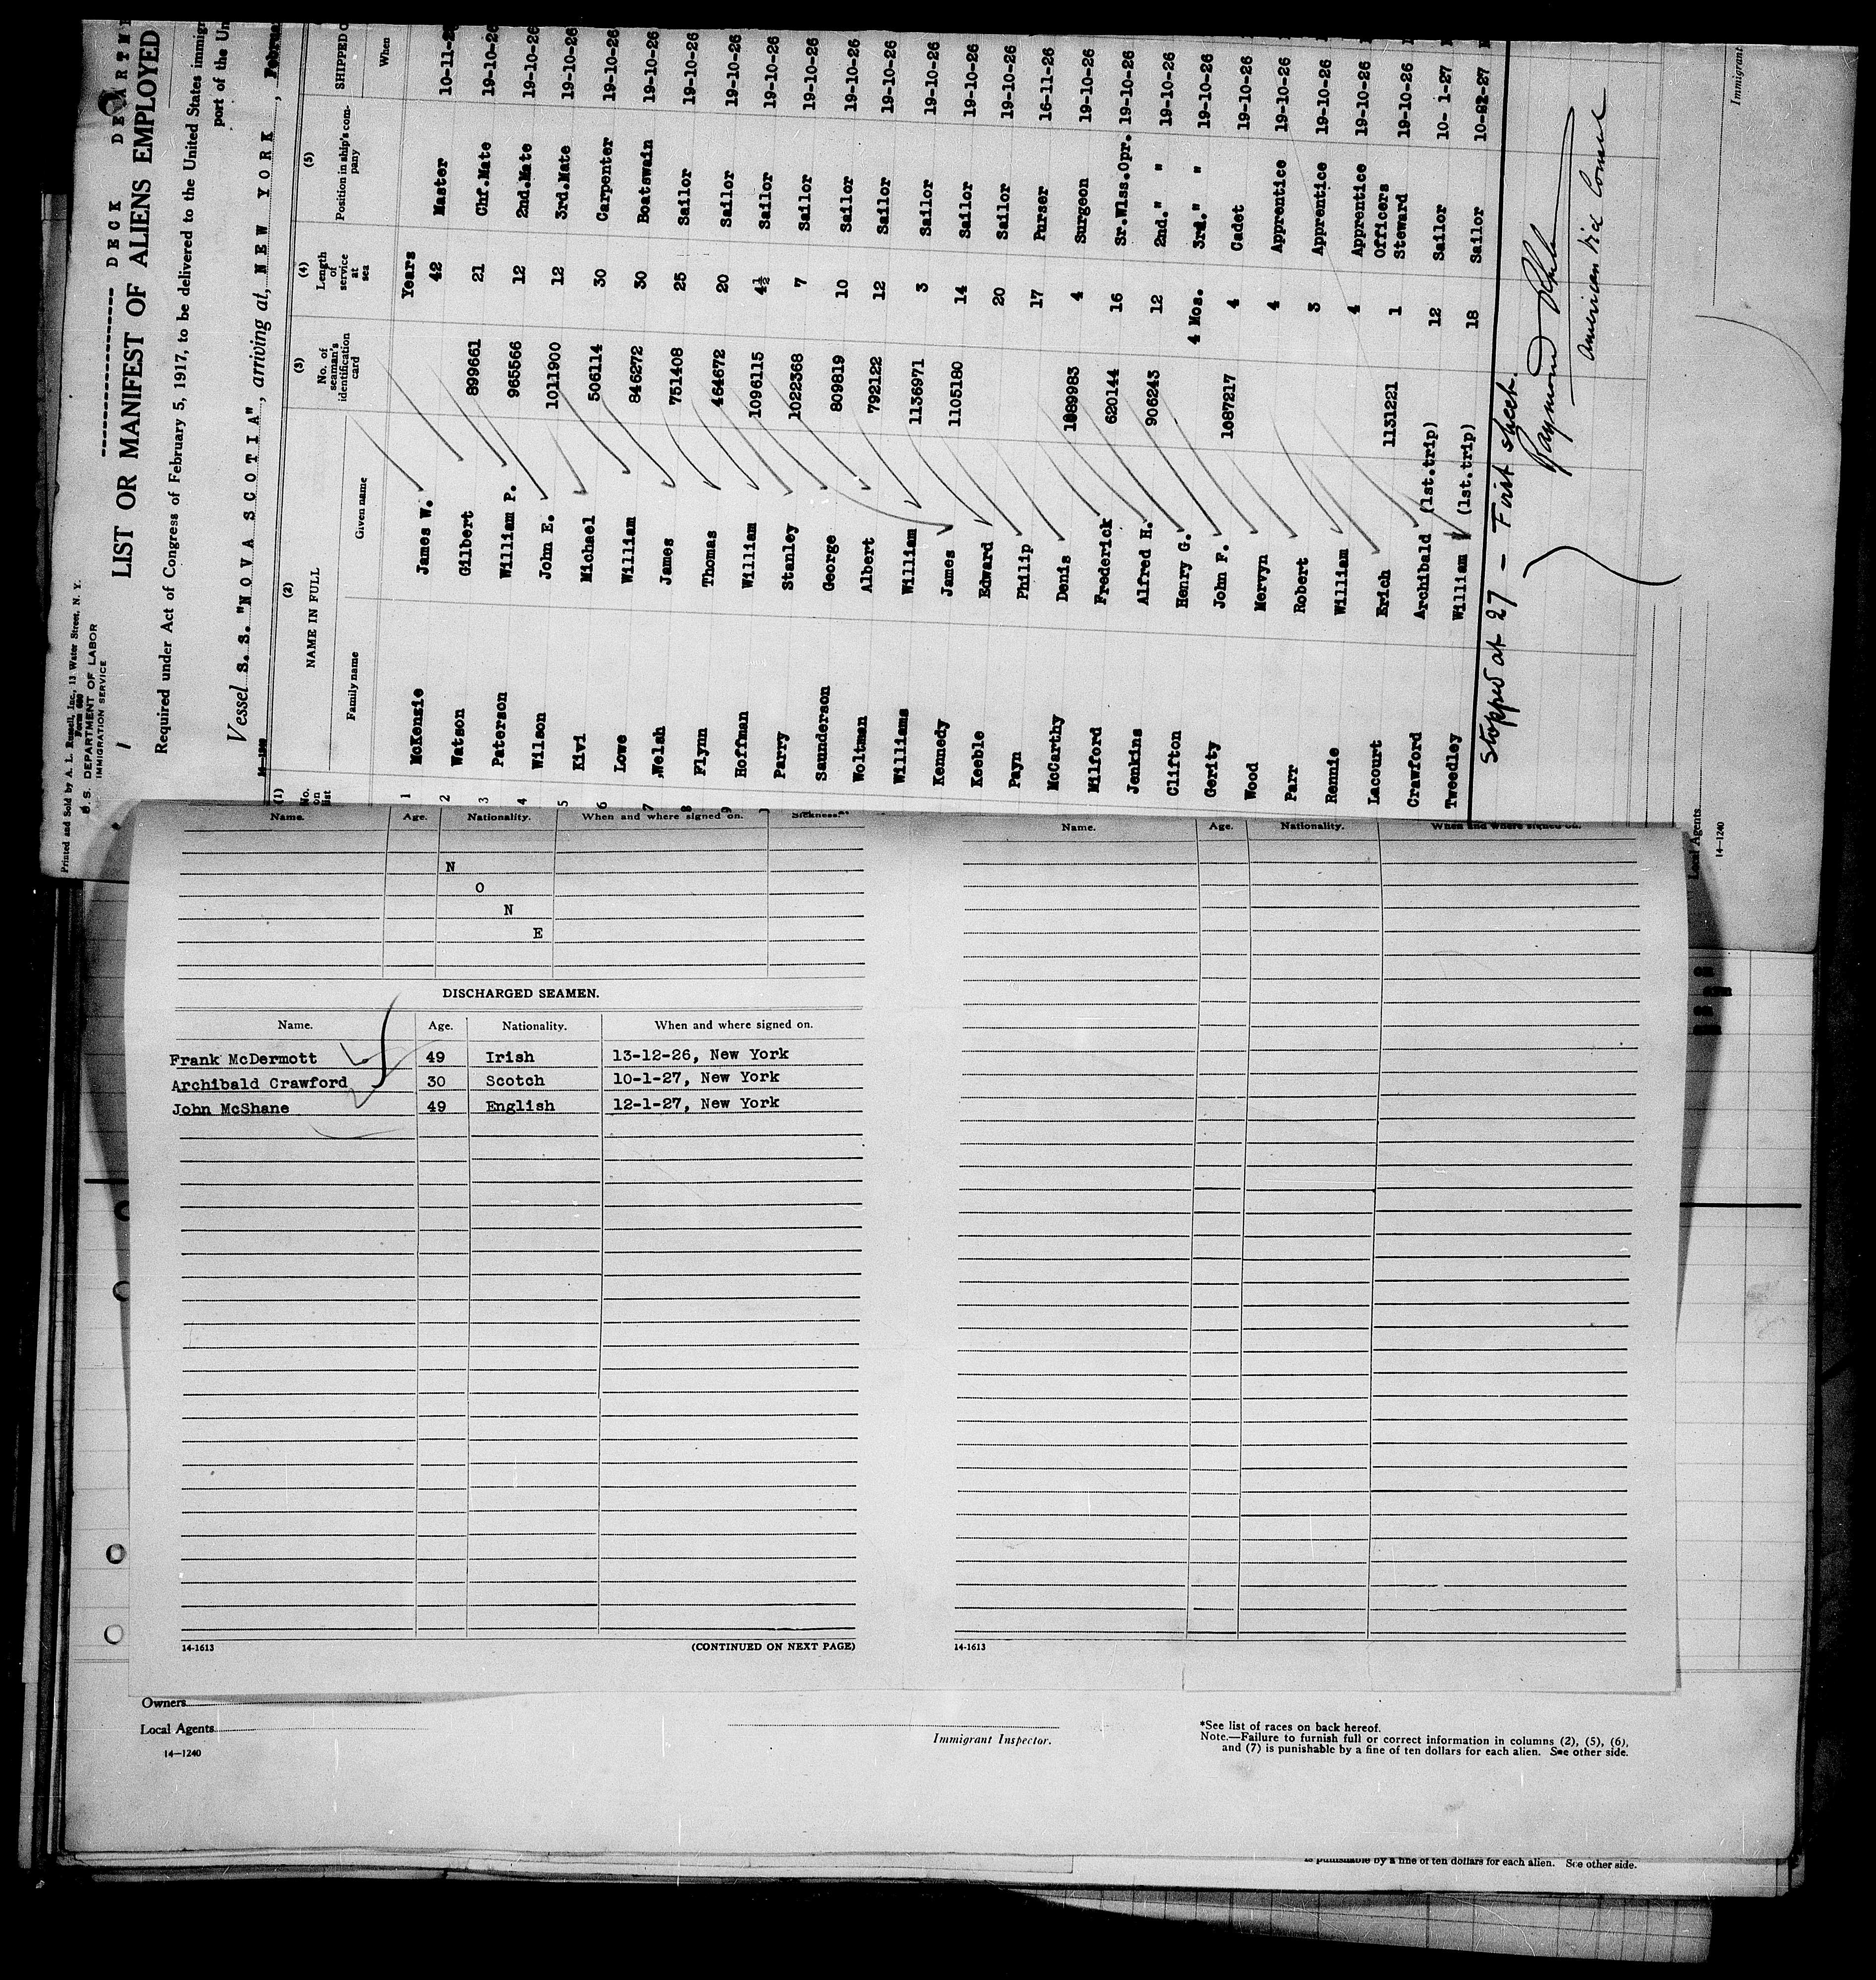 Printed and Sold by A. L. Russell, Inc., 13 Water Street, N. Y.
Form 680
U. S. DEPARTMENT OF LABOR
IMMIGRATION SERVICE
DECK
LIST OR MANIFEST OF ALIENS EMPLOYED
Required under Act of Congress of February 5, 1917, to be delivered to the United States
port of the
Vessel S. S. "NOVA SCOTIA", arriving at, NEW YORK,
(1) (2) (3) (4) (5)
No. on list NAME IN FULL No. of seaman's identification card Length of service at sea Position in ship's company SHIPPED
Family name Given name When
Years
1 McKenzie James W. 42 Master 10-11-26
2 Watson Gilbert 899661 21 Chf.Mate 19-10-26
3 Paterson William P. 965566 12 2nd.Mate 19-10-26
4 Wilson John E. 1011900 12 3rd.Mate 19-10-26
5 Kivi Michael 506114 30 Carpenter 19-10-26
6 Lowe William 846272 30 Boatswain 19-10-26
7 Welsh James 751408 25 Sailor 19-10-26
8 Flynn Thomas 464672 20 Sailor 19-10-26
9 Hoffman William 1096115 4½ Sailor 19-10-26
Parry Stanley 1022368 7 Sailor 19-10-26
Saunderson George 809819 10 Sailor 19-10-26
Woltman Albert 792122 12 Sailor 19-10-26
Williams William 1136971 3 Sailor 19-10-26
Kennedy James 1105180 14 Sailor 19-10-26
Keeble Edward 20 Sailor 19-10-26
Payn Philip 17 Purser 16-11-26
McCarthy Denis 1089983 4 Surgeon 19-10-26
Milford Frederick 620144 16 Sr.Wlss.Opr. 19-10-26
Jenkins Alfred H. 906243 12 2nd." " 19-10-26
Clifton Henry G. 4 Mos. 3rd." " 19-10-26
Gerity John F. 1087217 4 Cadet 19-10-26
Wood Mervyn 4 Apprentice 19-10-26
Parr Robert 3 Apprentice 19-10-26
Rennie William 4 Apprentice 19-10-26
Lacourt Erich 1131221 1 Officers Steward 19-10-26
Crawford Archibald (1st.trip) 12 Sailor 10- 1-27
Tweedley William (1st.trip) 18 Sailor 10-22-27
Stopped at 27 - First sheet.
Raymond
American Vice Consul
Immigrant
Local Agents
14-1240
Name. Age. Nationality. When and where signed on. Sickness.
N
O
N
E
DISCHARGED SEAMEN.
Name. Age. Nationality. When and where signed on.
Frank McDermott 49 Irish 13-12-26, New York
Archibald Crawford 30 Scotch 10-1-27, New York
John McShane 49 English 12-1-27, New York
14-1613 (CONTINUED ON NEXT PAGE)
Name. Age. Nationality. When and where signed on.
14-1613
Owners
Local Agents
14—1240
Immigrant Inspector.
*See list of races on back hereof.
Note.—Failure to furnish full or correct information in columns (2), (5), (6),
and (7) is punishable by a fine of ten dollars for each alien. See other side.
is punishable by a fine of ten dollars for each alien. See other side.